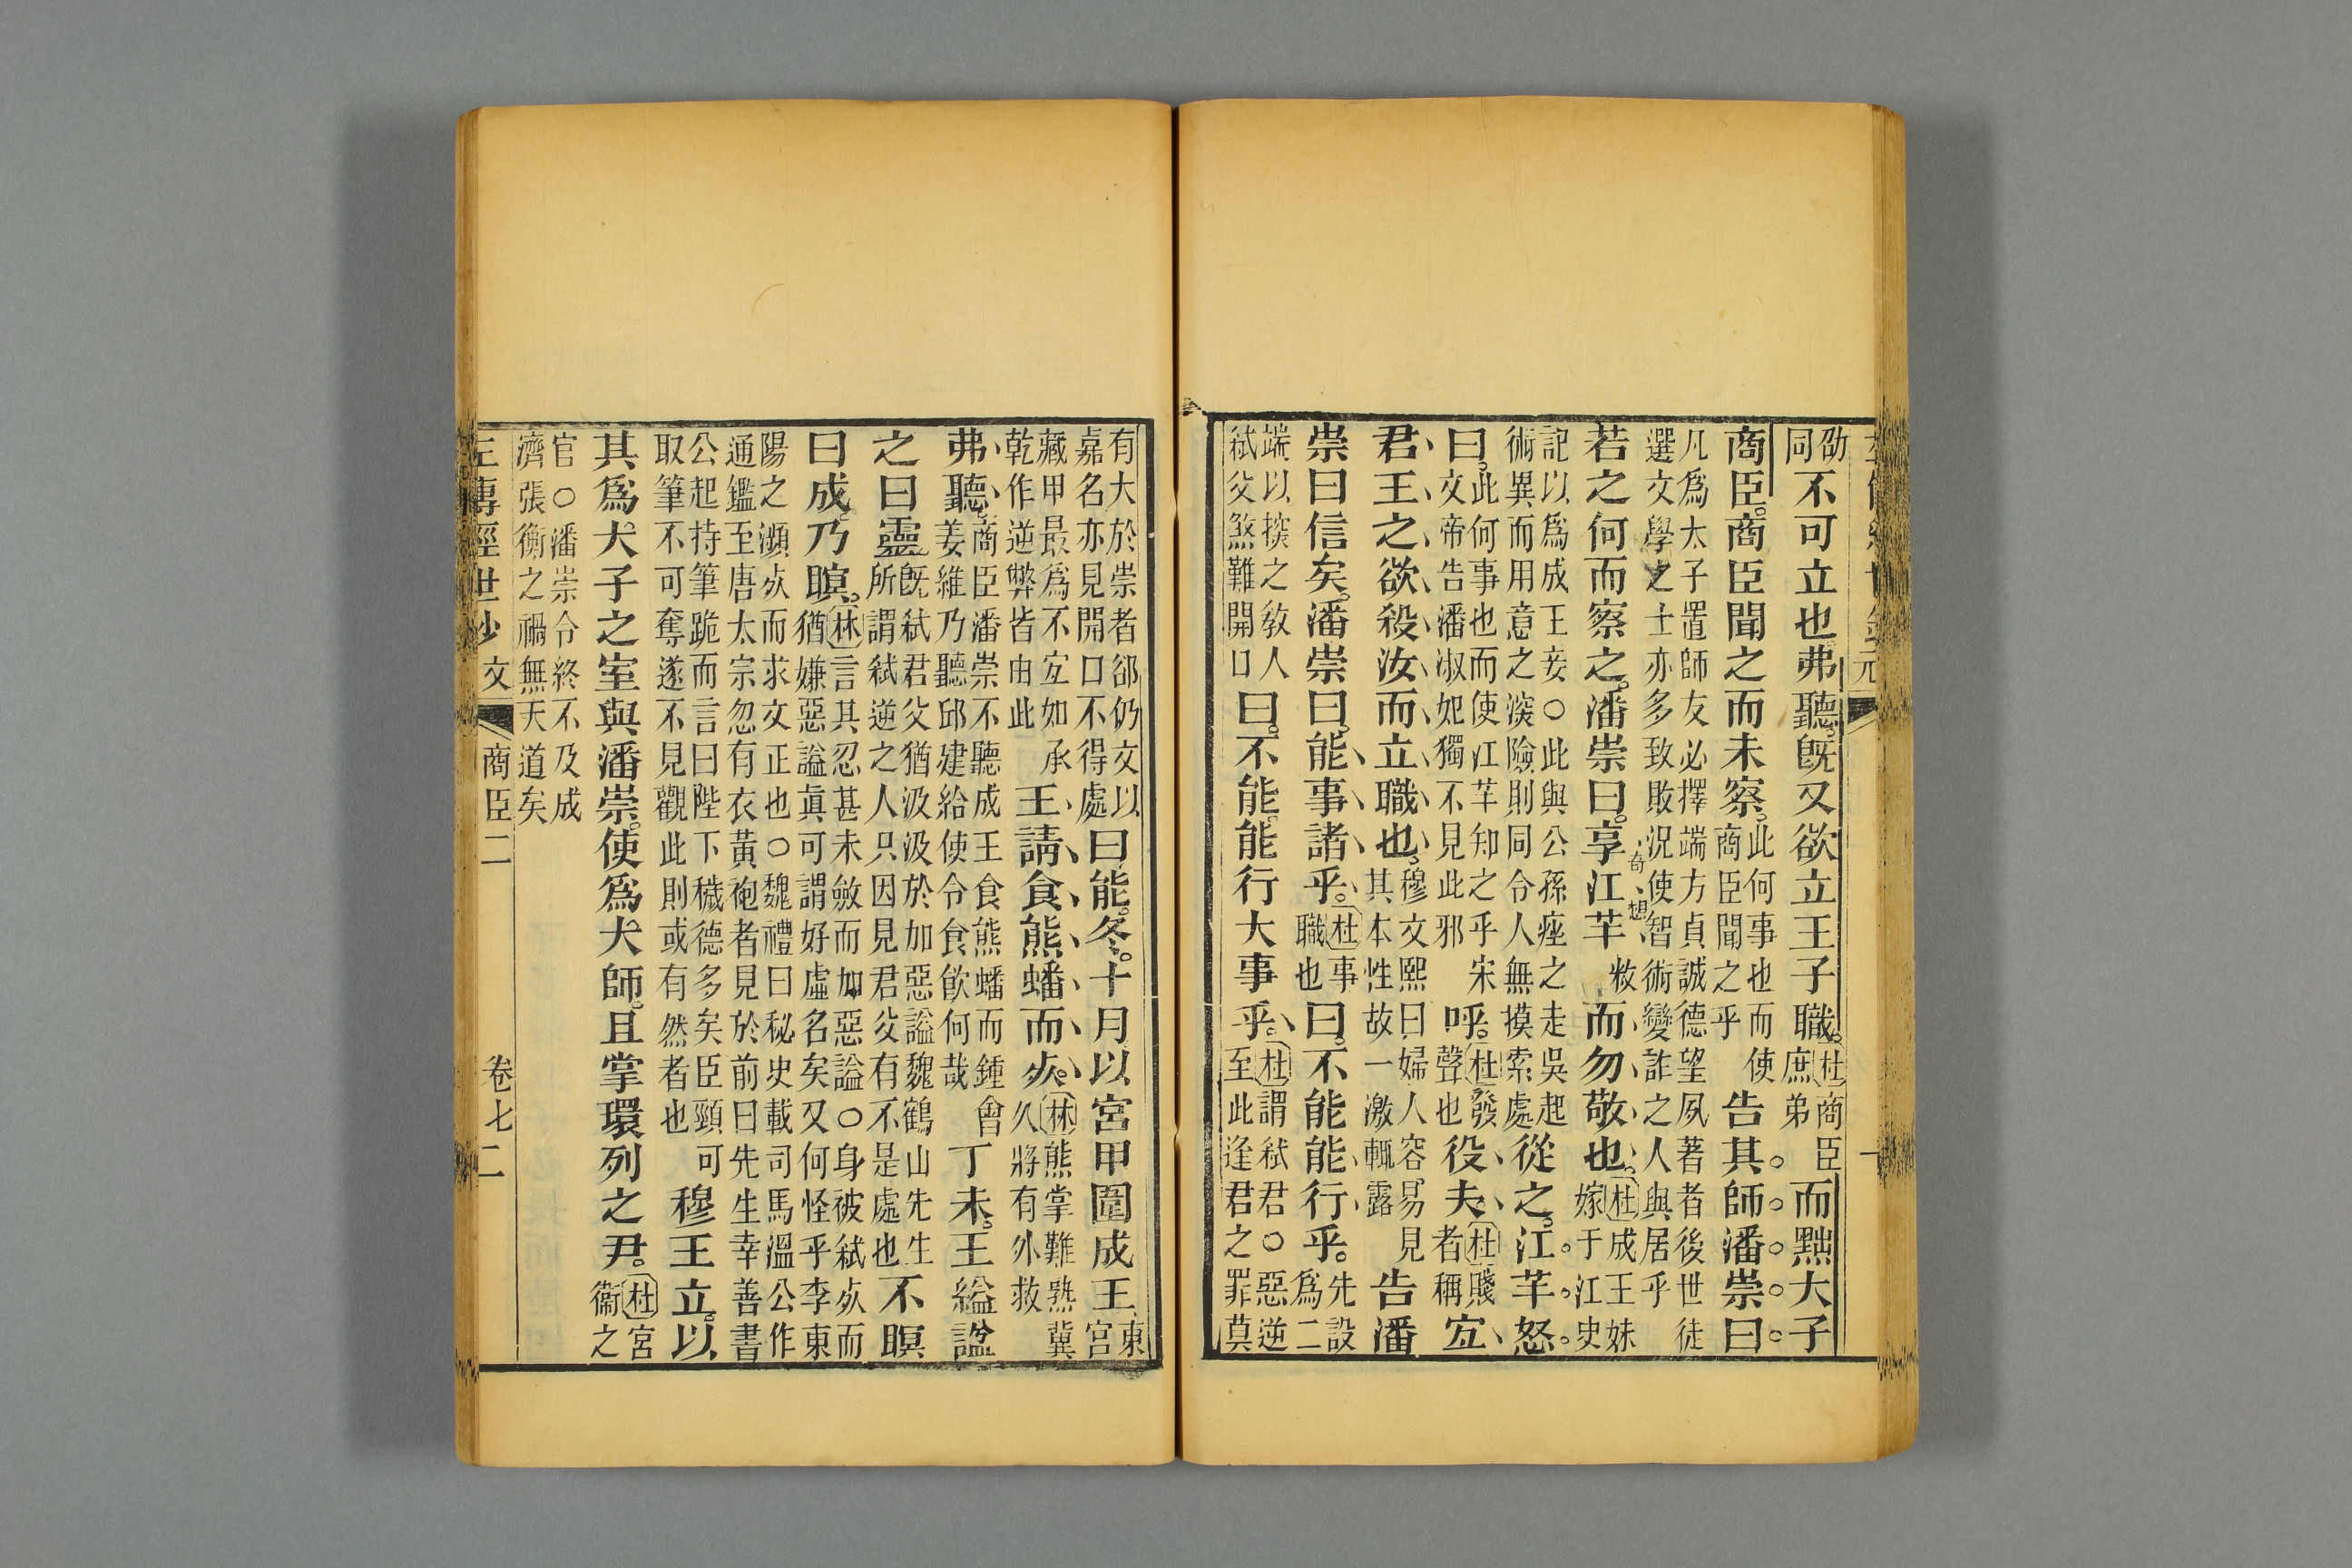 劭同不可立也弗聽既又欲立王子職杜商臣庶弟而黜大子
商臣商臣聞之而未察此何事也而使商臣聞之乎告其師潘崇曰
凡為太子置師友必擇端方貞誠德望夙著者後世徒選文學之士亦多致敗況使智術變詐之人與居乎
若之何而察之潘崇曰享江羋奇想敉而勿敬也杜成王妹嫁于江史
記以為成王妾○此與公孫痤之走吳起術異而用意之深險則同令人無摸索處從之江羋怒
曰此何事也而使江羋知之乎宋文帝告潘淑妃獨不見此邪呼杜發聲也役夫杜賤者稱宜
君王之欲殺汝而立職也穆文熙曰婦人容易見其本性故一激輒露告潘
崇曰信矣潘崇曰能事諸乎杜事職也曰不能能行乎先設為二
端以探之教人弒父煞難開口曰不能能行大事乎杜謂弒君○惡逆至此逢君之罪莫
有大於崇者郤仍文以嘉名亦見開口不得處曰能冬十月以宮甲圍成王東宮
藏甲最為不宜如承乾作逆弊皆由此王請食熊蹯而死林熊掌難熟冀久將有外救
弗聽商臣潘崇不聽成王食熊蹯而鍾會姜維乃聽邱建給使令食飲何哉丁未王縊諡
之曰靈既弒君父猶汲汲於加惡諡魏鶴山先生所謂弒逆之人只因見君父有不是處也不瞑
曰成乃瞑林言其忍甚未斂而加惡諡○身被弒死而猶嫌惡諡真可謂好虛名矣又何怪乎李東
陽之瀕死而求文正也○魏禮曰秘史載司馬溫公作通鑑至唐太宗忽有衣黃袍者見於前曰先生幸善書
公起持筆跪而言曰陛下穢德多矣臣頸可取筆不可奪遂不見觀此則或有然者也穆王立以
其為大子之室與潘崇使為大師且掌環列之尹杜宮衛之
官○潘崇令終不及成濟張衡之禍無天道矣
左傳經世鈔 文 商臣二 卷七 二